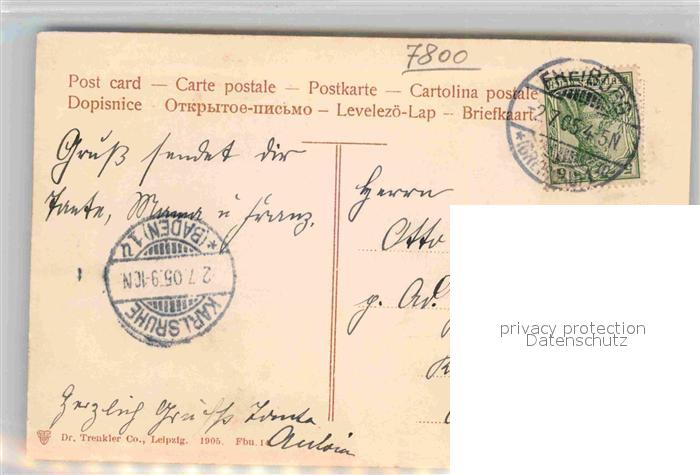 7800
Post card — Carte postale — Postkarte — Cartolina postale
Dopisnice — Открытое-письмо — Levelező-Lap — Briefkaart.
FREIBURG
2 7 05 4-5N
Gruß sendet dir
Tante, Mama u Franz.
Herrn
Otto
p. Ad.
KARLSRUHE
2.7.05.9-10N.
*(BADEN)1u
privacy protection
Datenschutz
Herzlich Grüßt Tante
Dr. Trenkler Co., Leipzig. 1905. Fbu. 1